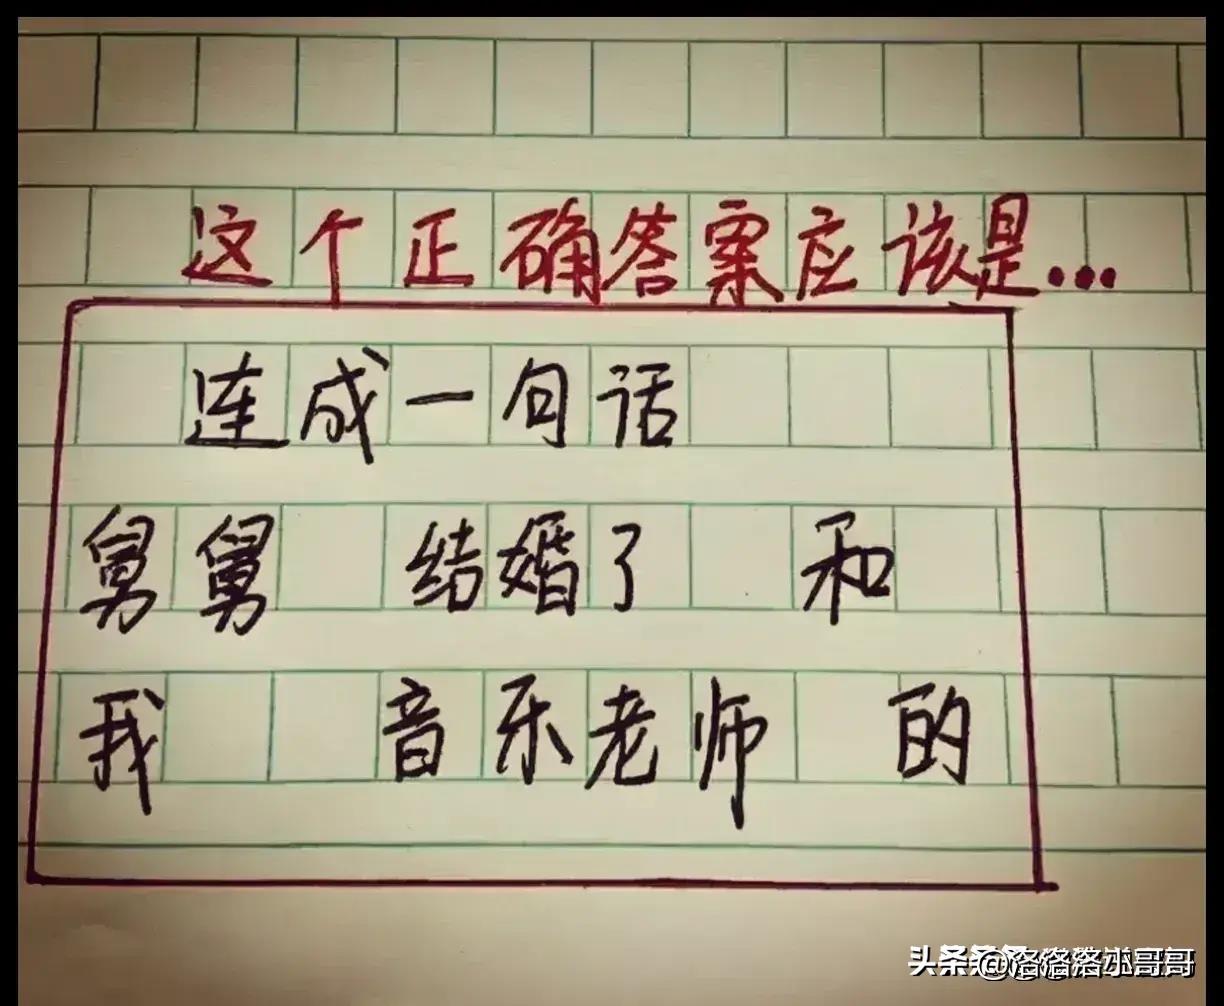 这个正确答案应该是...
连成一句话
舅舅 结婚了 和
我 音乐老师 的
头条 @洛洛洛小哥哥